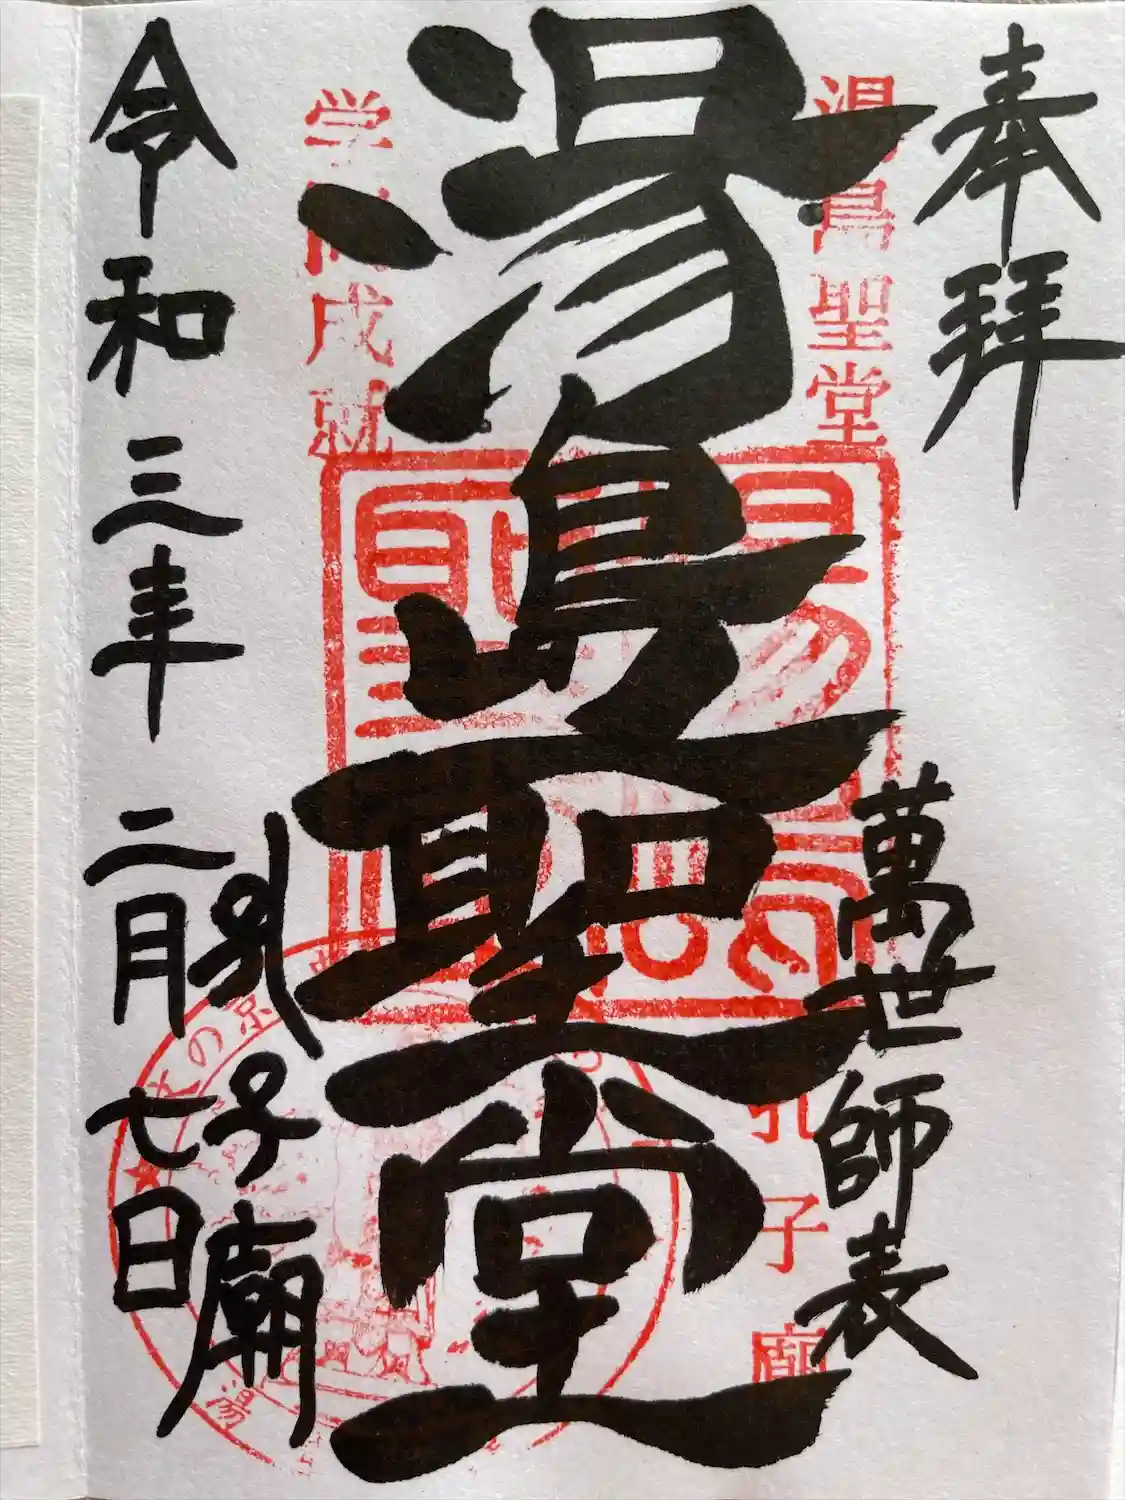 奉拝
萬世師表
湯島聖堂
孔子廟
湯島聖堂
学成就
孔子廟
令和三年二月七日